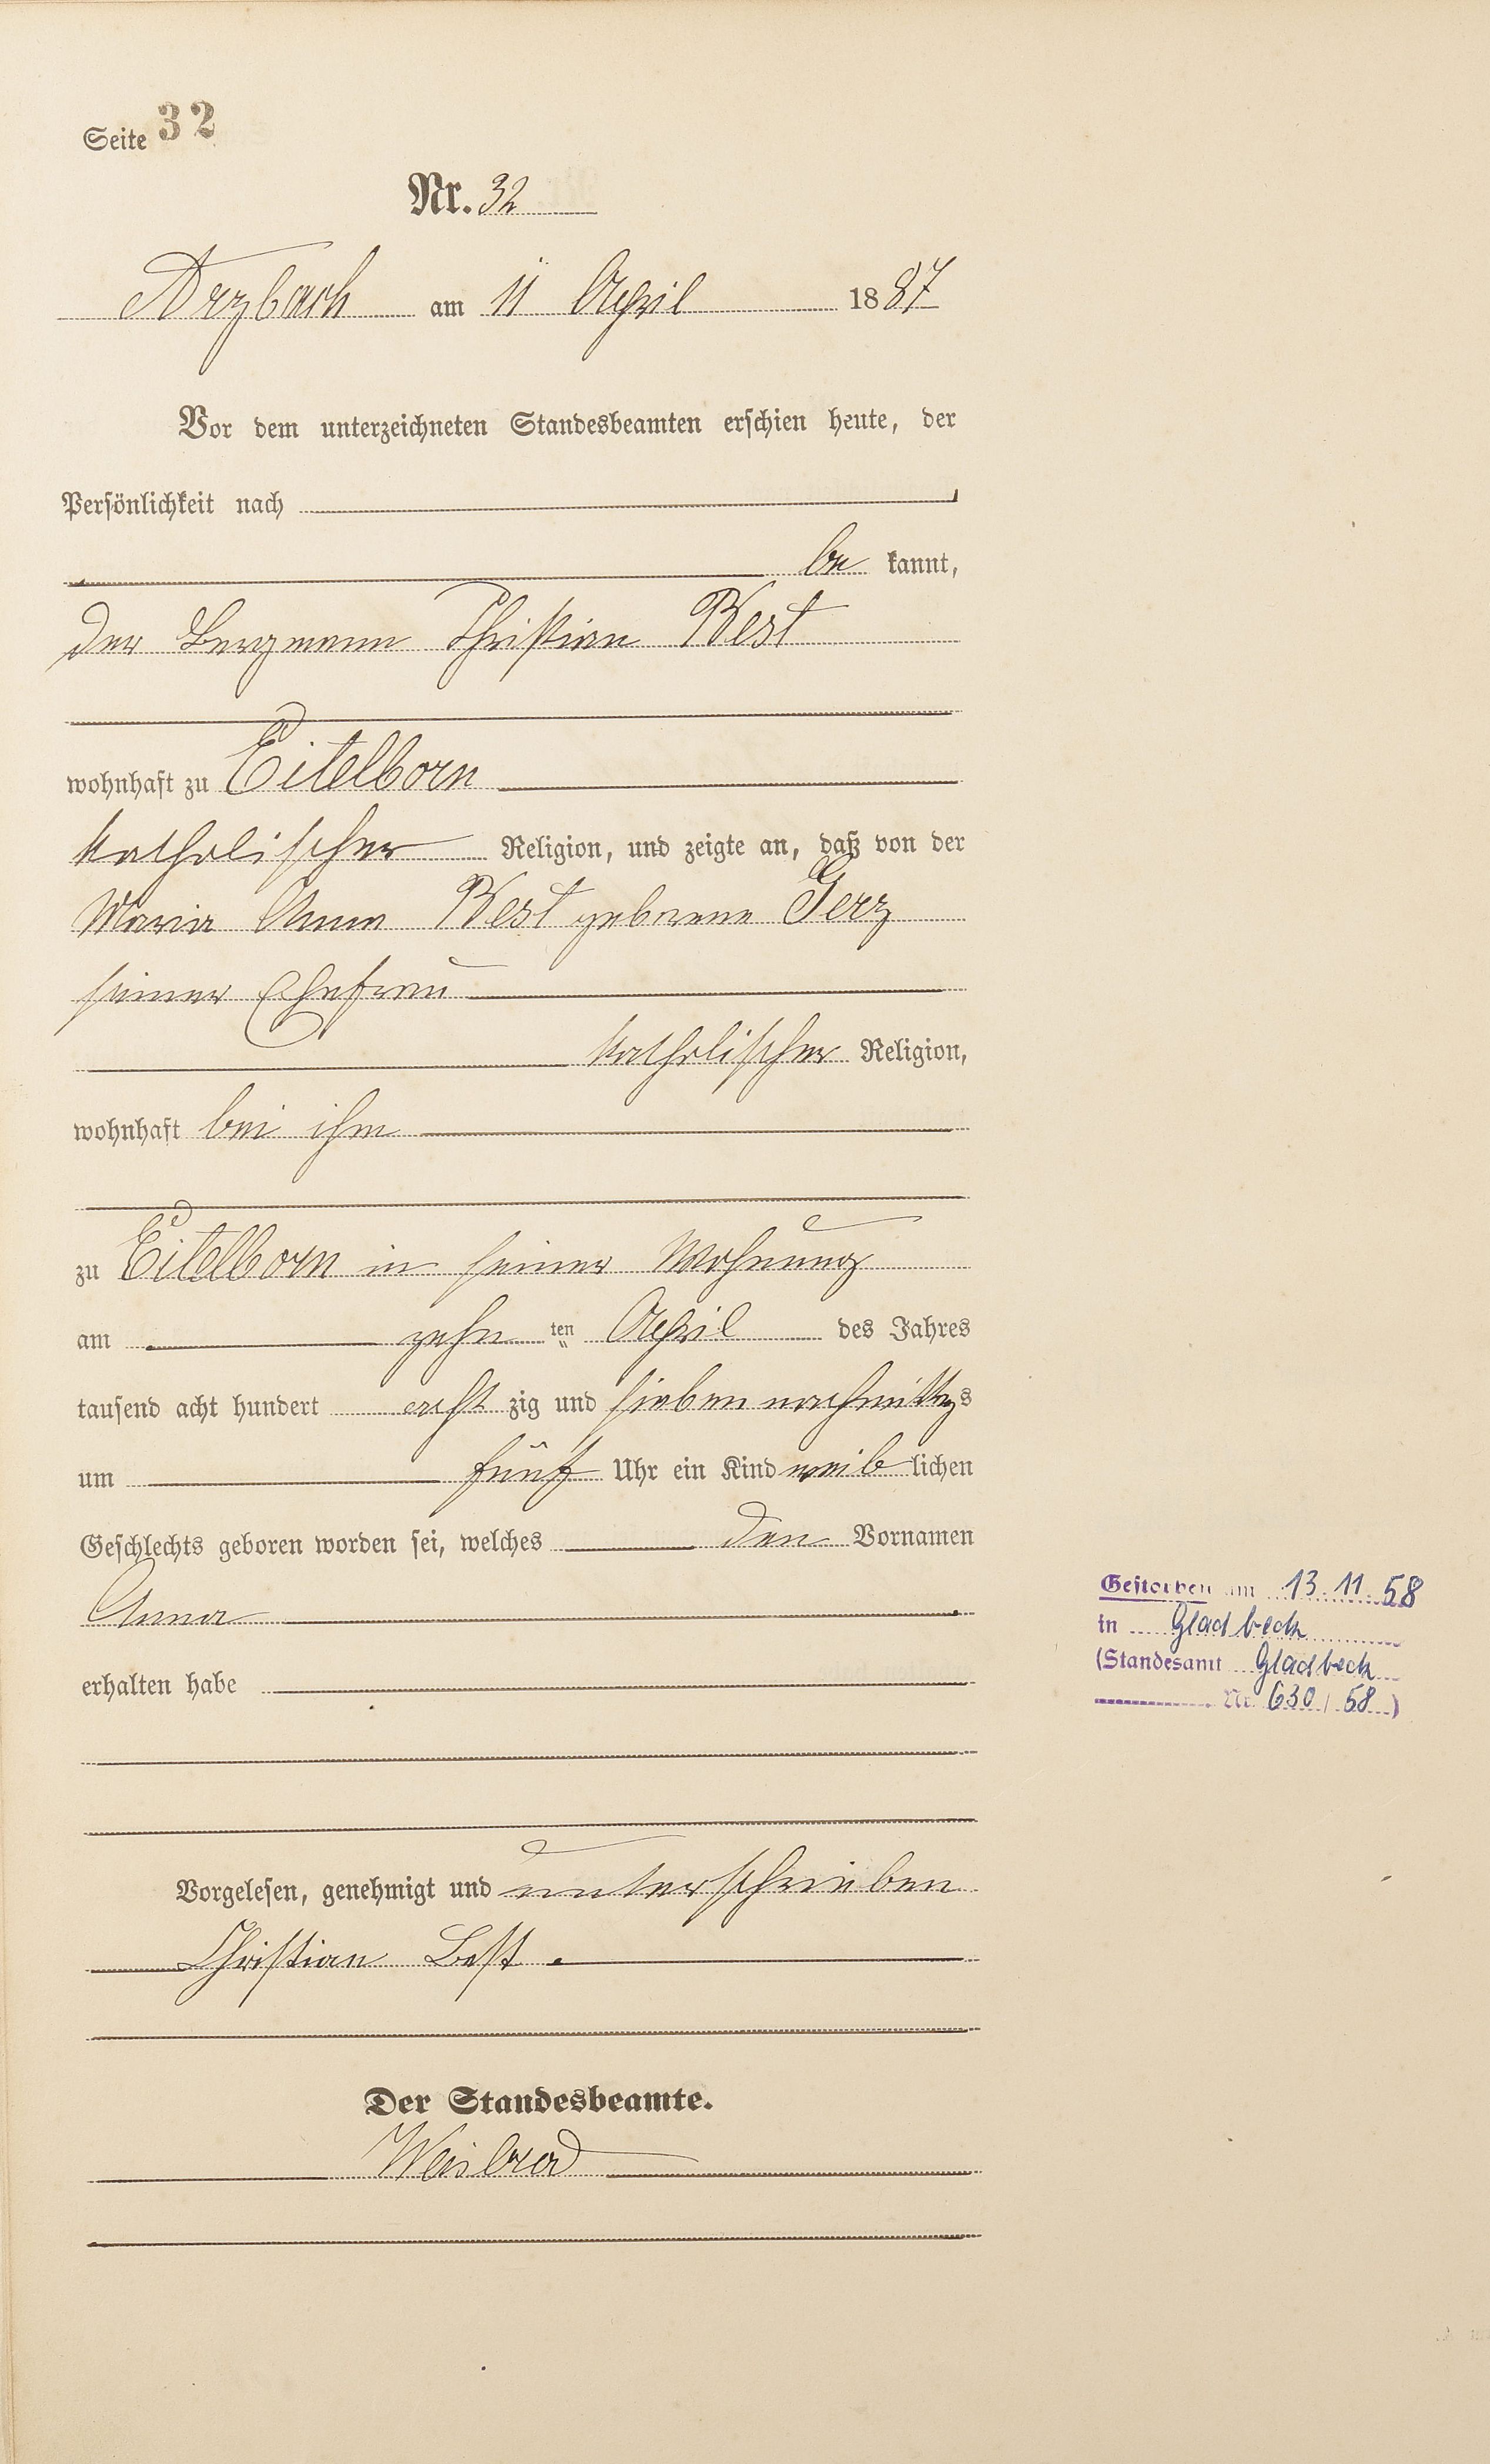 Seite 32
Nr. 32
Arzbach am 11 April 1887
Vor dem unterzeichneten Standesbeamten erschien heute, der
Persönlichkeit nach
be kannt,
der Bergmann Christian Best
wohnhaft zu Eitelborn
katholischer Religion, und zeigte an, daß von der
Maria Anna Best geborene Gerz
seiner Ehefrau
katholischer Religion,
wohnhaft bei ihm
zu Eitelborn in seiner Wohnung
am zehn ten April des Jahres
tausend acht hundert acht zig und sieben nachmittags
um fünf Uhr ein Kind weib lichen
Geschlechts geboren worden sei, welches den Vornamen
Anna
erhalten habe
Vorgelesen, genehmigt und unterschrieben
Christian Best.
Der Standesbeamte.
Weisbrod
Gestorben am 13.11.58
in Gladbeck
(Standesamt Gladbeck
Nr. 630/58)